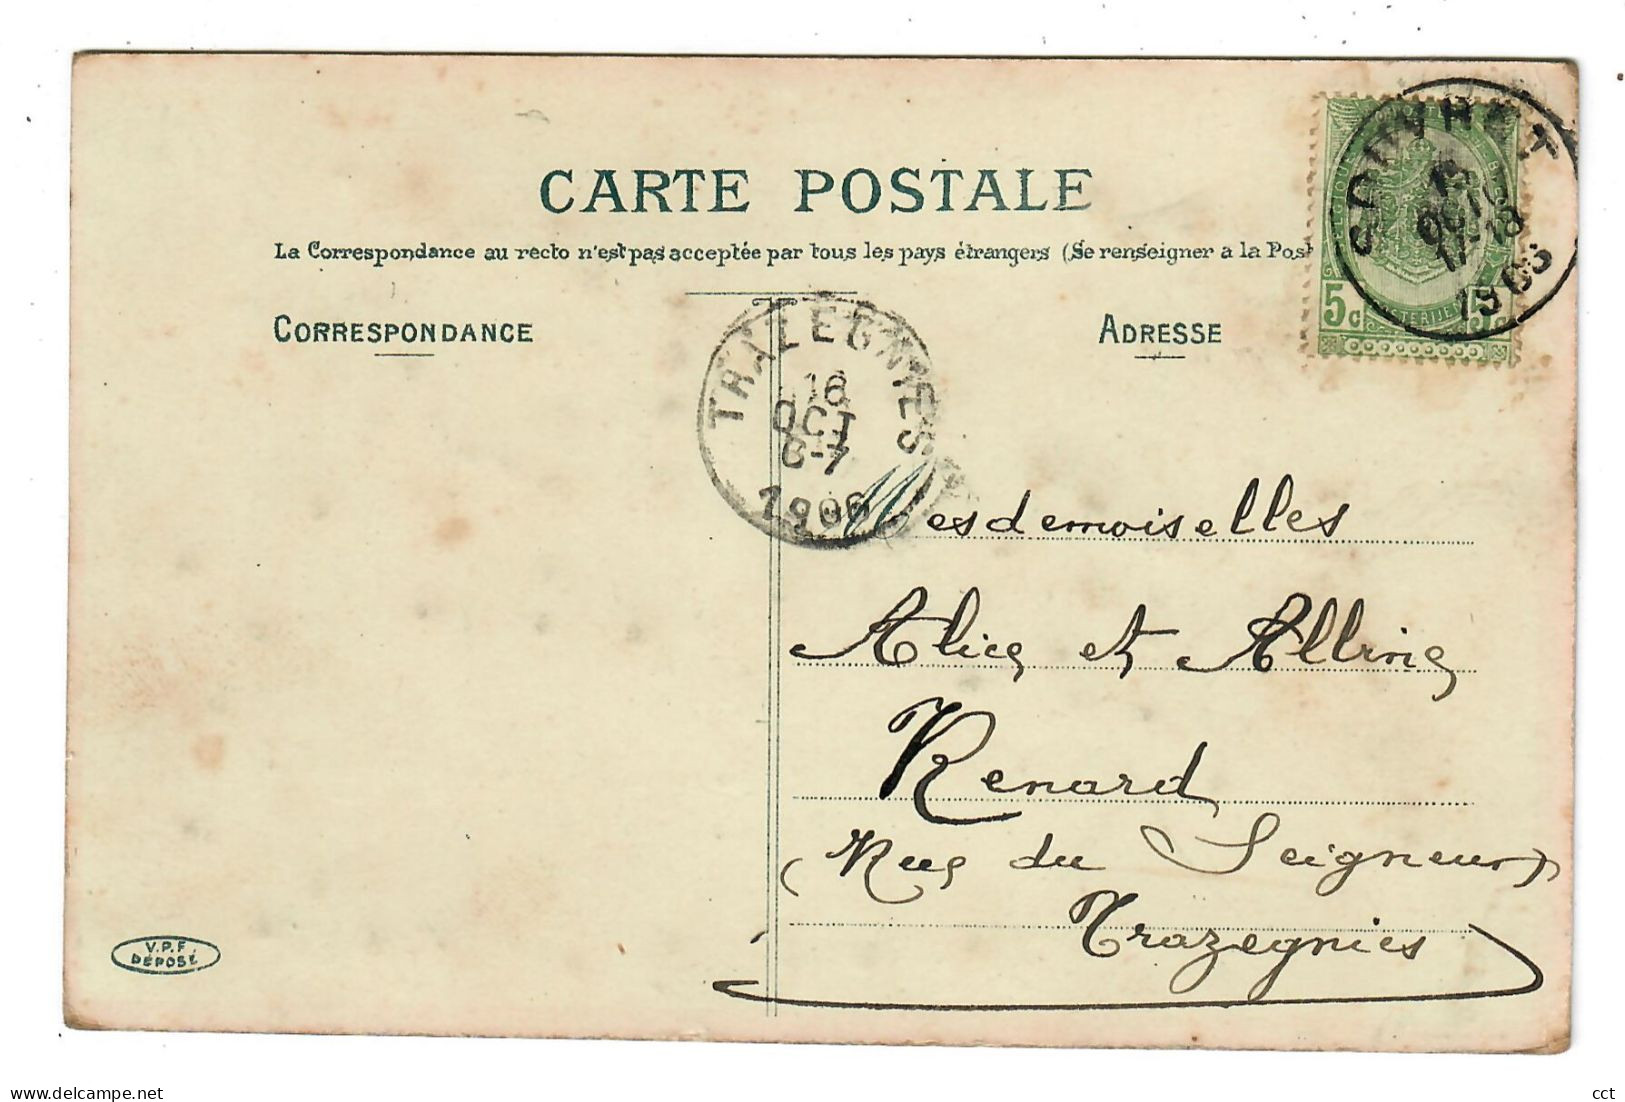 CARTE POSTALE
La Correspondance au recto n'est pas acceptée par tous les pays étrangers (Se renseigner a la Post
CORRESPONDANCE
ADRESSE
5c
TRAZEGNIES
16
OCT
6-7
1906
OCTO
17-18
Mesdemoiselles
Alice et Alline
Renard
(Rue du Seigneur)
Trazegnies
V.P.F.
DÉPOSÉ
delcampe.net
cct